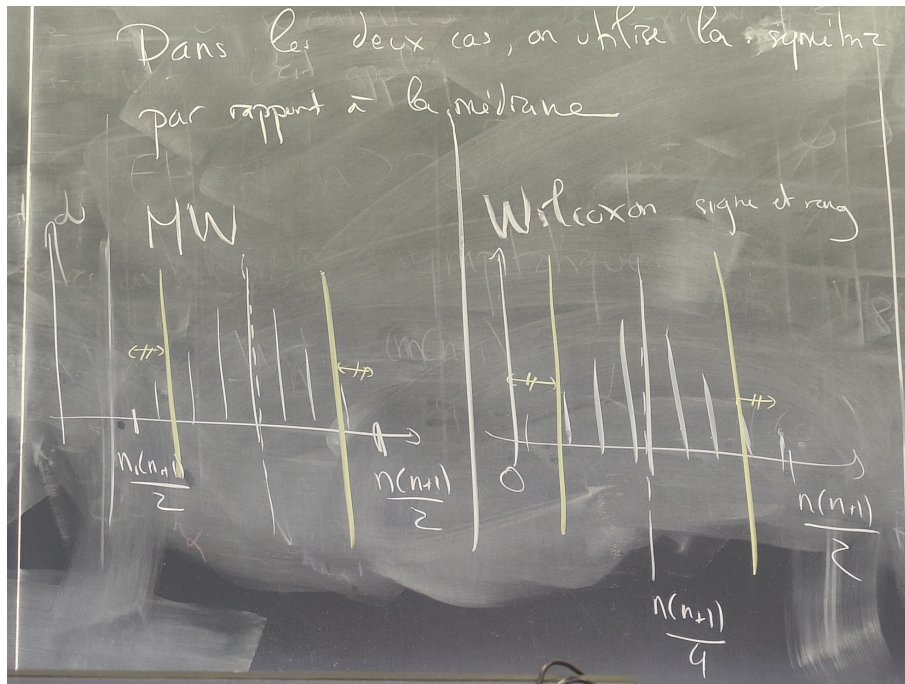 Dans les deux cas, on utilise la symétrie
par rapport à la médiane
MW
n₁(n₁+1)
2
n(n+1)
2
Wilcoxon signe et rang
0
n(n+1)
2
n(n+1)
4